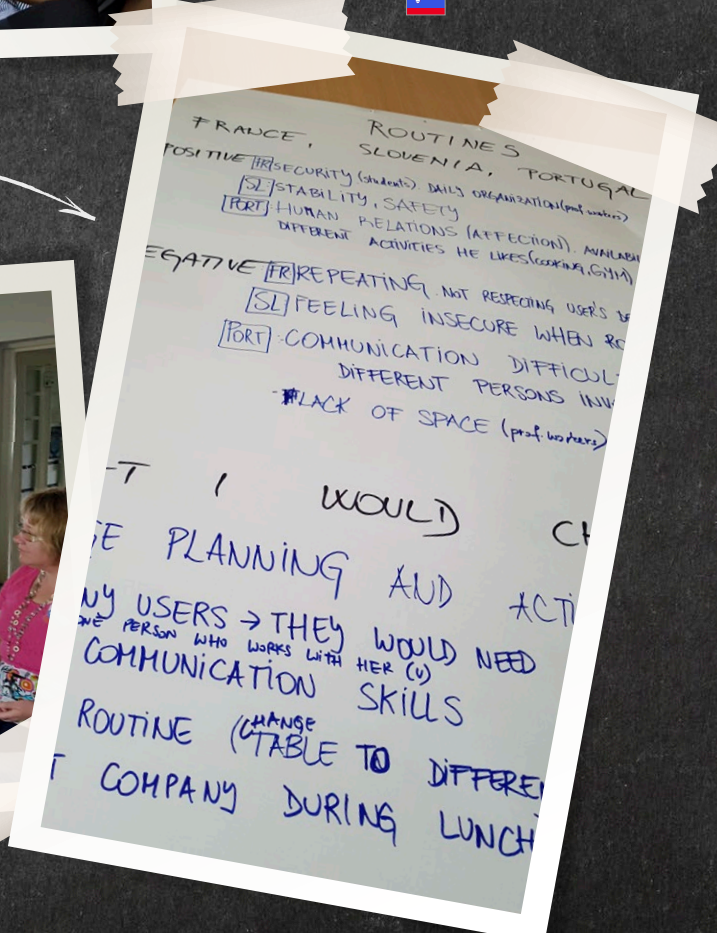 ROUTINES
FRANCE, SLOVENIA, PORTUGAL
POSITIVE FR SECURITY (students). DAILY ORGANIZATION (prof. workers)
SL STABILITY, SAFETY
PORT. HUMAN RELATIONS (AFFECTION). AVAILABI
DIFFERENT ACTIVITIES HE LIKES (COOKING, GYM)
EGATIVE FR REPEATING. NOT RESPECTING USER'S DE
SL FEELING INSECURE WHEN RO
PORT · COMMUNICATION DIFFICUL
DIFFERENT PERSONS INV
- LACK OF SPACE (prof. workers)
T I WOULD CH
GE PLANNING AND ACTI
NY USERS → THEY WOULD NEED
ONE PERSON WHO WORKS WITH HER (U)
COMMUNICATION SKILLS
ROUTINE (CHANGE
TABLE TO DIFFERE
T COMPANY DURING LUNCH